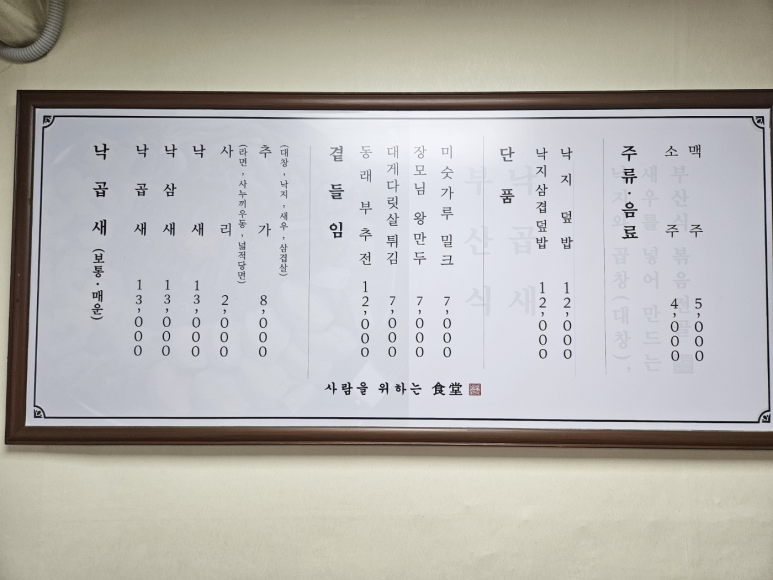 낙곱새 (보통·매운)
낙곱새 13,000
낙삼새 13,000
낙새 13,000
사리 2,000
(라면, 사누끼우동, 넓적당면)
추가 8,000
(대창, 낙지, 새우, 삼겹살)
곁들임
동래부추전 12,000
대게다릿살 튀김 7,000
장모님 왕만두 7,000
미숫가루 밀크 7,000
단품
낙지삼겹덮밥 12,000
낙지덮밥 12,000
주류·음료
소주 4,000
맥주 5,000
부산식
낙곱새
낙지와 곱창(대창),
새우를 넣어 만드는
부산식 볶음전골
사람을 위하는 食堂